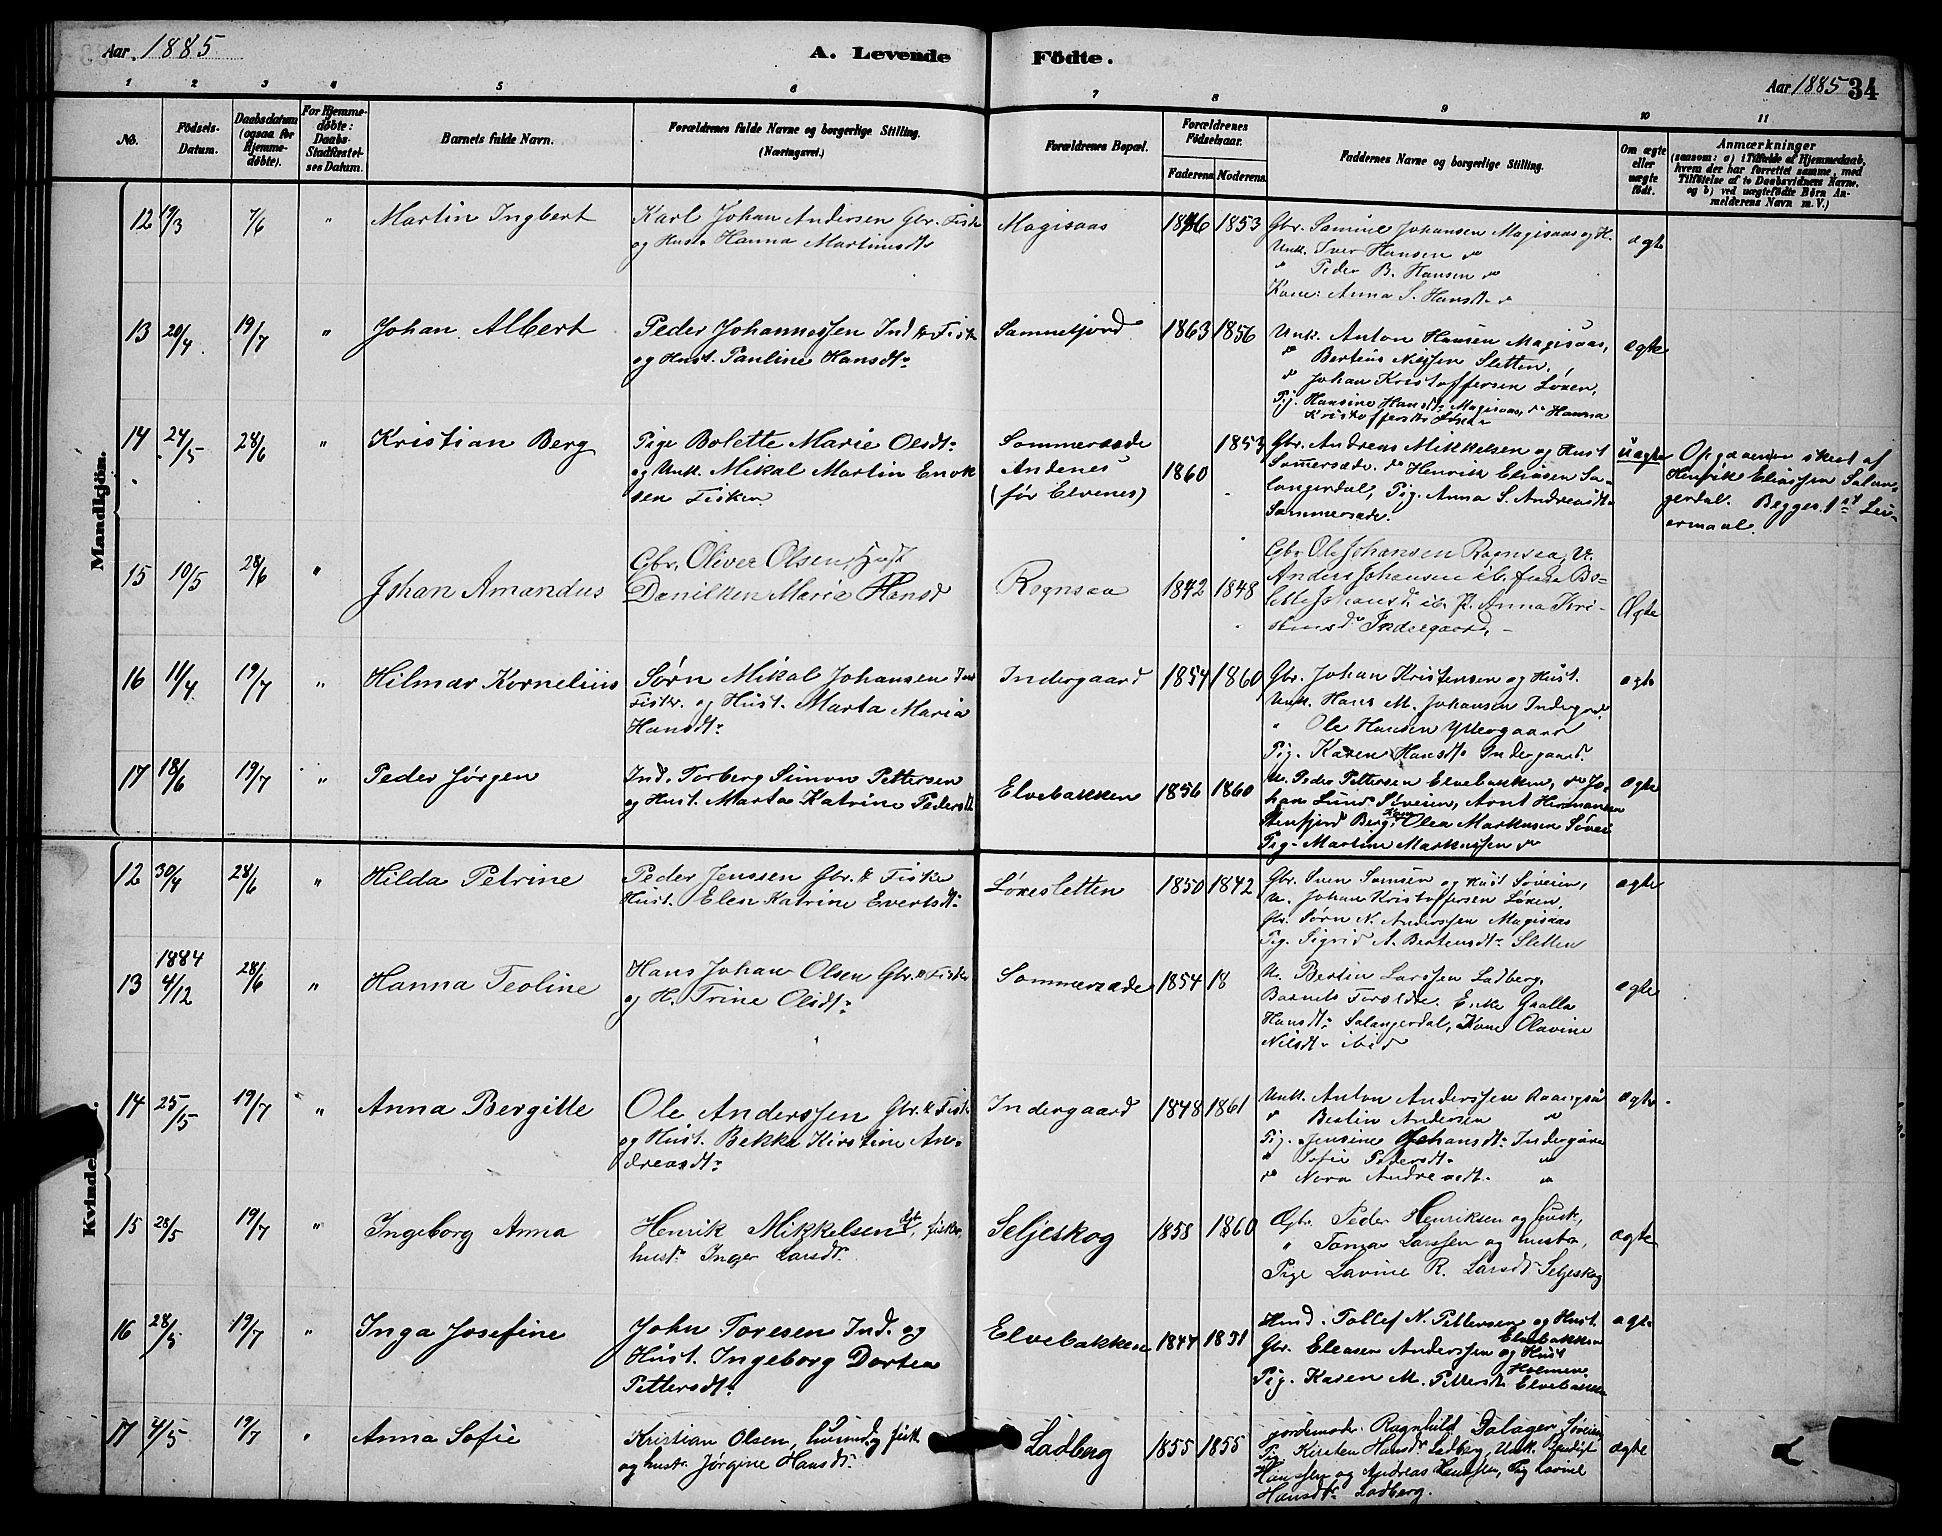 Aar 1885
A. Levende Födte.
Aar 1885 34
1 2 3 4 5 6 7 8 9 10 11
No.
Födsels-
Datum.
Daabsdatum
(ogsaa for
Hjemme-
döbte).
For Hjemme-
döbte:
Daabs-
Stadfæstel-
ses Datum.
Barnets fulde Navn.
Forældrenes fulde Navne og borgerlige Stilling.
(Næringsvei.)
Forældrenes Bopæl.
Forældrenes
Födselsaar.
Faderens. Moderens.
Faddernes Navne og borgerlige Stilling.
Om ægte
eller
uægte
födt.
Anmærkninger
(saasom: a) i Tilfælde af Hjemmedaab,
hvem der har forrettet samme, med
Tilföielse af to Daabsvidners Navne,
og b) ved uægtefödte Börn An-
melderens Navn m. V.)
Mandkjön.
12 19/3 7/6 " Martin Ingbert
Karl Johan Andersen Gbr. Fisk
og Hust. Hanna Martinusdtr
Magisaas 1846 1853
Gbr. Samuel Johansen Magisaas og H.
Unk. Iver Hansen do
" Peder B. Hansen do
Kone: Anna S. Hansdtr do
ægte
13 20/4 19/7 " Johan Albert
Peder Johannessen Ind. & Fisk
og Hust. Pauline Hansdtr
Samuelfjord 1863 1856
Unk. Anton Hansen Magisaas,
do Bertius Nilssen Sletten,
do Johan Kristoffersen Løxen,
Pig. Hansine Hansdtr Magisaas, do Hanna
Kristoffersdtr Løxen
ægte
14 24/5 28/6 " Kristian Berg
Pige Bolette Marie Olsdtr
og Unk. Mikal Martin Enok
sen Fisker
Sommersæde
Andenes
(før Elvenes)
1860 1853
Gbr. Andreas Mikkelsen og Hust
Sommersæde. do Henrik Eliasen Sa-
langerdal, Pig. Anna S. Andreasdtr
Sommersæde.
uægte
Opgaven skeet af
Henrik Eliassen Salan-
gerdal. Begges 1st Lei-
ermaal.
15 19/5 28/6 " Johan Amandus
Gbr. Oliver Olsen, Hust
Danilken Marie Hansd
Rognsaa 1842 1848
Gbr Ole Johansen Rognsaa, U.
Anders Johansen ib. fruen Bo-
lette Johansd. ib. P. Anna Kri-
stensdr Indergaard.
Ægte
16 11/4 19/7 " Hilmar Kornelius
Sørn Mikal Johansen Ind
Fisker. og Hust. Marta Maria
Hansdtr
Indergaard 1854 1860
Gbr. Johan Kristensen og Hust.
Unk. Hans M. Johansen Indergrd.
" Ole Hansen Yttergaard
Pig. Karen Hansdtr Indergaard.
ægte
17 18/6 19/7 " Peder Jørgen
Ind. Torberg Simon Pettersen
og Hust. Marta Katrine Pedersdt
Elvebakken 1856 1860
U. Peder Pettersen Elvebakken, do Jo-
han Lund Søveien, Arnt Hermansen
Stenfjord Berg, Kone Olea Markusen Søvei
Pig. Martine Markussen do
ægte
Kvindekjön.
12 30/4 28/6 " Hilda Petrine
Peder Jenssen Gbr. & Fisker
Hust. Elen Katrine Evertsdtr
Løxesletten 1850 1842
Gbr. Sven Samsen og Hust Søveien,
U. Johan Kristoffersen Løxen,
Gbr. Sørn N. Anderssen Magisaas
Pig. Sigrid A. Bertensdtr Sletten
ægte
13 1884
4/12 28/6 " Hanna Teoline
Hans Johan Olsen Gbr. & Fisker
og H. Trine Olsdtr
Sommersæde 1854 18
U. Bertin Larssen Ladberg,
Barnets Forældre. Enke Gralla
Hansdtr Salangerdal, Kone Olavine
Nilsdtr ibid
ægte
14 25/5 19/7 " Anna Bergitte
Ole Anderssen Gbr. & Fisk
og Hust. Bekka Kirstine An-
dreasdtr
Indergaard 1848 1861
Unk. Anton Anderssen Raangsaa
" Bertin Andersen "
Pig. Jensine Johansdtr Indergaard
" Sofie Pedersdtr "
do Nora Andreasdt. "
ægte
15 28/5 19/7 " Ingeborg Anna
Henrik Mikkelsen Gbr, fisker,
hustr Inger Larsdtr.
Seljeskog 1858 1860
Gbr. Peder Henriksen og hust.,
" Tomas Larssen og hustr,
Pige Lavine R. Larsdtr Seljeskog
ægte
16 28/5 19/7 " Inga Josefine
John Toresen Ind. og
Hust. Ingeborg Dortea
Pettersdtr
Elvebakken 1847 1851
Hmd. Tollef N. Pettersen og Hust.
Elvebakken
Gbr. Eleasen Anderssen og Hust
Holmen,
Pig. Karen M. Pettersdtr Elvebakken
ægte
17 4/5 19/7 " Anna Sofie
Kristian Olsen, husmd og fisk
og hustr Jørgine Hansdtr.
Ladberg 1855 1855
jordemoder Ragnhild Dalager Søveien
Pig Kirsten Hansdtr Ladberg, Unk. Bendigt
Hanssen og Andreas Hanssen, Pig Lovise
Hansdtr Ladberg.
ægte